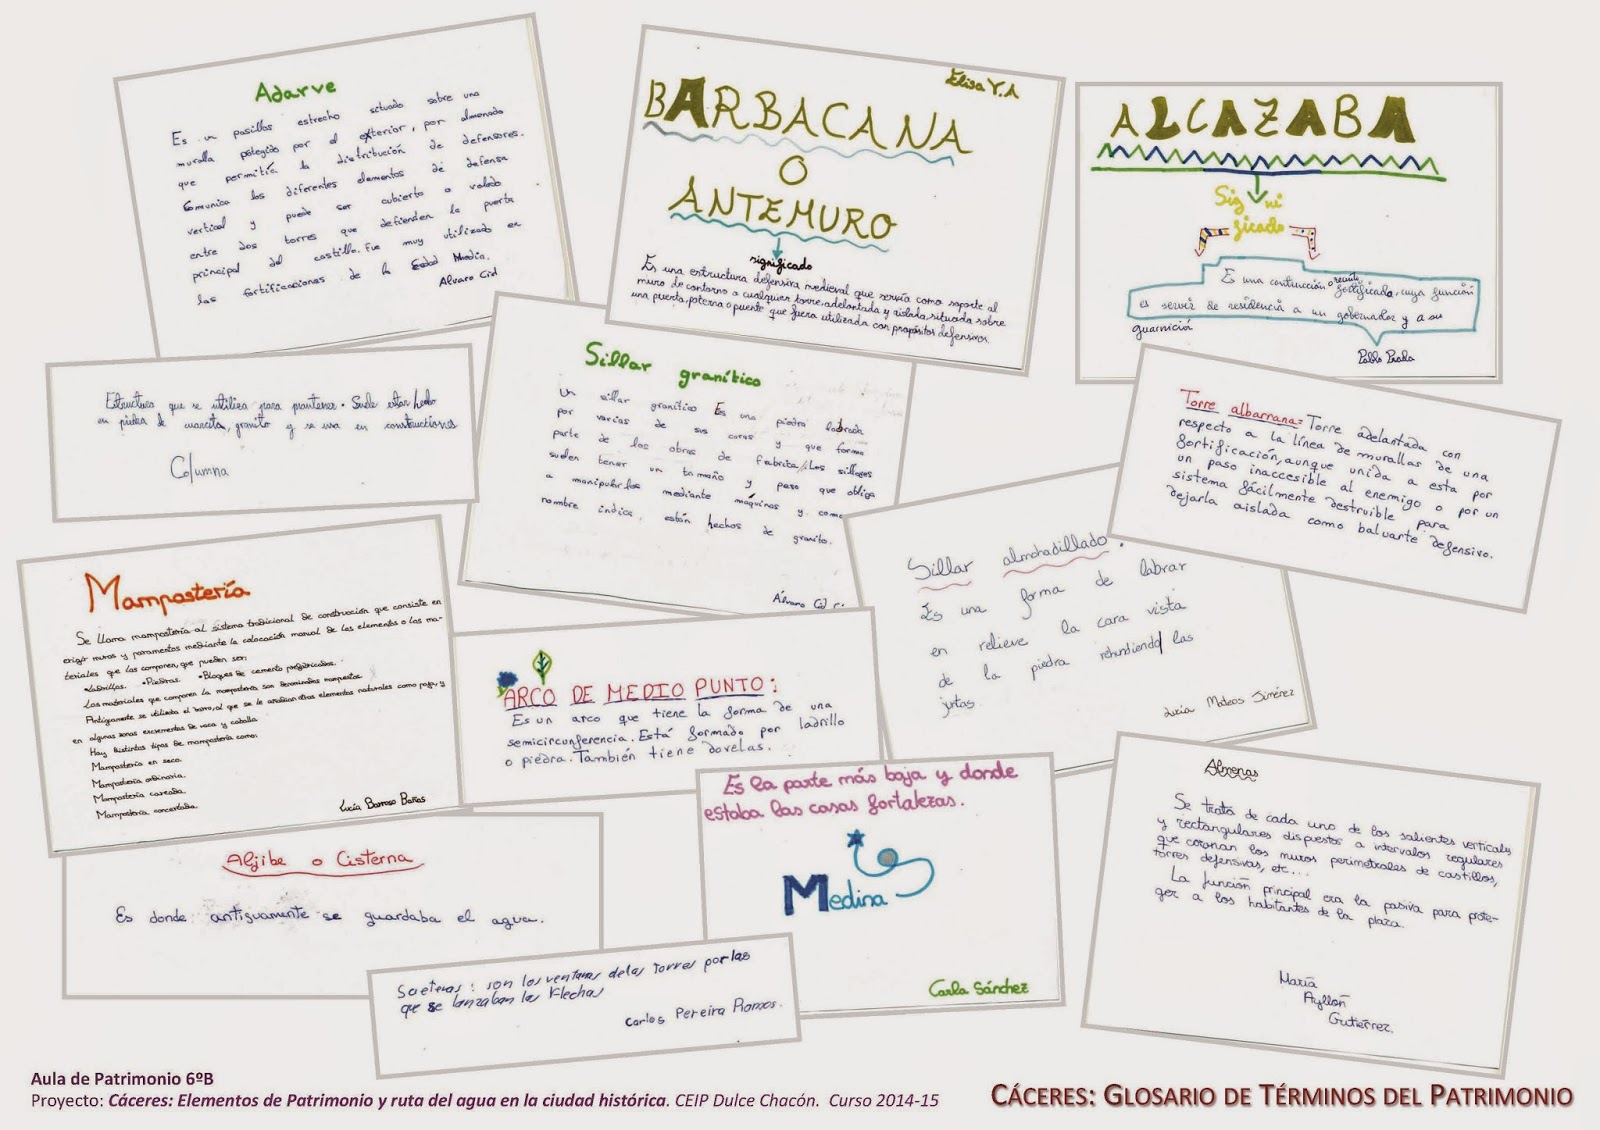 Adarve
Es un pasillos estrecho situado sobre una
muralla potegido por el exterior, por almenado
que permitía la distribución de defensores.
Comunica los diferentes elementos de defensa
vertical y puede ser cubierto o volado
entre dos torres que defienden la puerta
principal del castillo. Fue muy utilizado en
las fortificaciones de la Edad Media.
Alvaro Cid
Elisa Y.A
BARBACANA
O
ANTEMURO
significado
Es una estructura defensiva medieval que servía como soporte al
muro de contorno o cualquier torre, adelantada y aislada, situada sobre
una puerta, poterna o puente que fuera utilizada con propósitos defensivos.
ALCAZABA
Signi
ficado
Es una contrucción o recinto fortificado, cuya función
es servir de residencia a un gobernador y a su
guarnición
Pablo Prada
Estructura que se utiliza para mantener. Suele estar hecho
en piedra de cuarcita, granito y se usa en construcciones
Columna
Sillar granítico
Un sillar granítico Es una piedra labrada
por varias de sus caras y que forma
parte de las obras de fabrica. Los sillares
suelen tener un tamaño y peso que obliga
a manipularlos mediante máquinas y como
nombre indica, están hechos de granito.
Álvaro Cid C.
Torre albarrana= Torre adelantada con
respecto a la línea de murallas de una
fortificación, aunque unida a esta por
un paso inaccesible al enemigo o por un
sistema fácilmente destruible para
dejarla aislada como baluarte defensivo.
Mampostería
Se llama mampostería al sistema tradicional de construcción que consiste en
erigir muros y paramentos mediante la colocación manual de los elementos o los ma-
teriales que los componen, que pueden ser:
•Ladrillos. •Piedras. •Bloques de cemento prefabricados.
Los materiales que componen la mampostería son denominados mampuestos.
Antiguamente se utilizaba el barro, al que se le añadían otros elementos naturales como paja y
en algunas zonas excrementos de vaca y caballo.
Hay distintos tipos de mampostería como:
Mampostería en seco.
Mampostería ordinaria.
Mampostería careada.
Mampostería concertada.
Lucía Barroso Bañas
Sillar almohadillado.
Es una forma de labrar
en relieve la cara vista
de la piedra rehundiendo las
juntas.
Lucía Mateos Jiménez
ARCO DE MEDIO PUNTO:
Es un arco que tiene la forma de una
semicircunferencia. Está formado por ladrillo
o piedra. También tiene dovelas.
Es la parte más baja y donde
estaba las casas fortalezas.
Medina
Carla Sánchez
Almenas
Se trata de cada uno de los salientes verticales
y rectangulares dispuestos a intervalos regulares
que coronan los muros perimetrales de castillos,
torres defensivas, etc...
La función principal era la pasiva para prote-
ger a los habitantes de la plaza.
María
Ayllón
Gutiérrez.
Aljibe o Cisterna
Es donde antiguamente se guardaba el agua.
Saeteras: son los ventanas delas torres por las
que se lanzaban las flechas
Carlos Pereira Ramos.
Aula de Patrimonio 6ºB
Proyecto: Cáceres: Elementos de Patrimonio y ruta del agua en la ciudad histórica. CEIP Dulce Chacón. Curso 2014-15
CÁCERES: GLOSARIO DE TÉRMINOS DEL PATRIMONIO